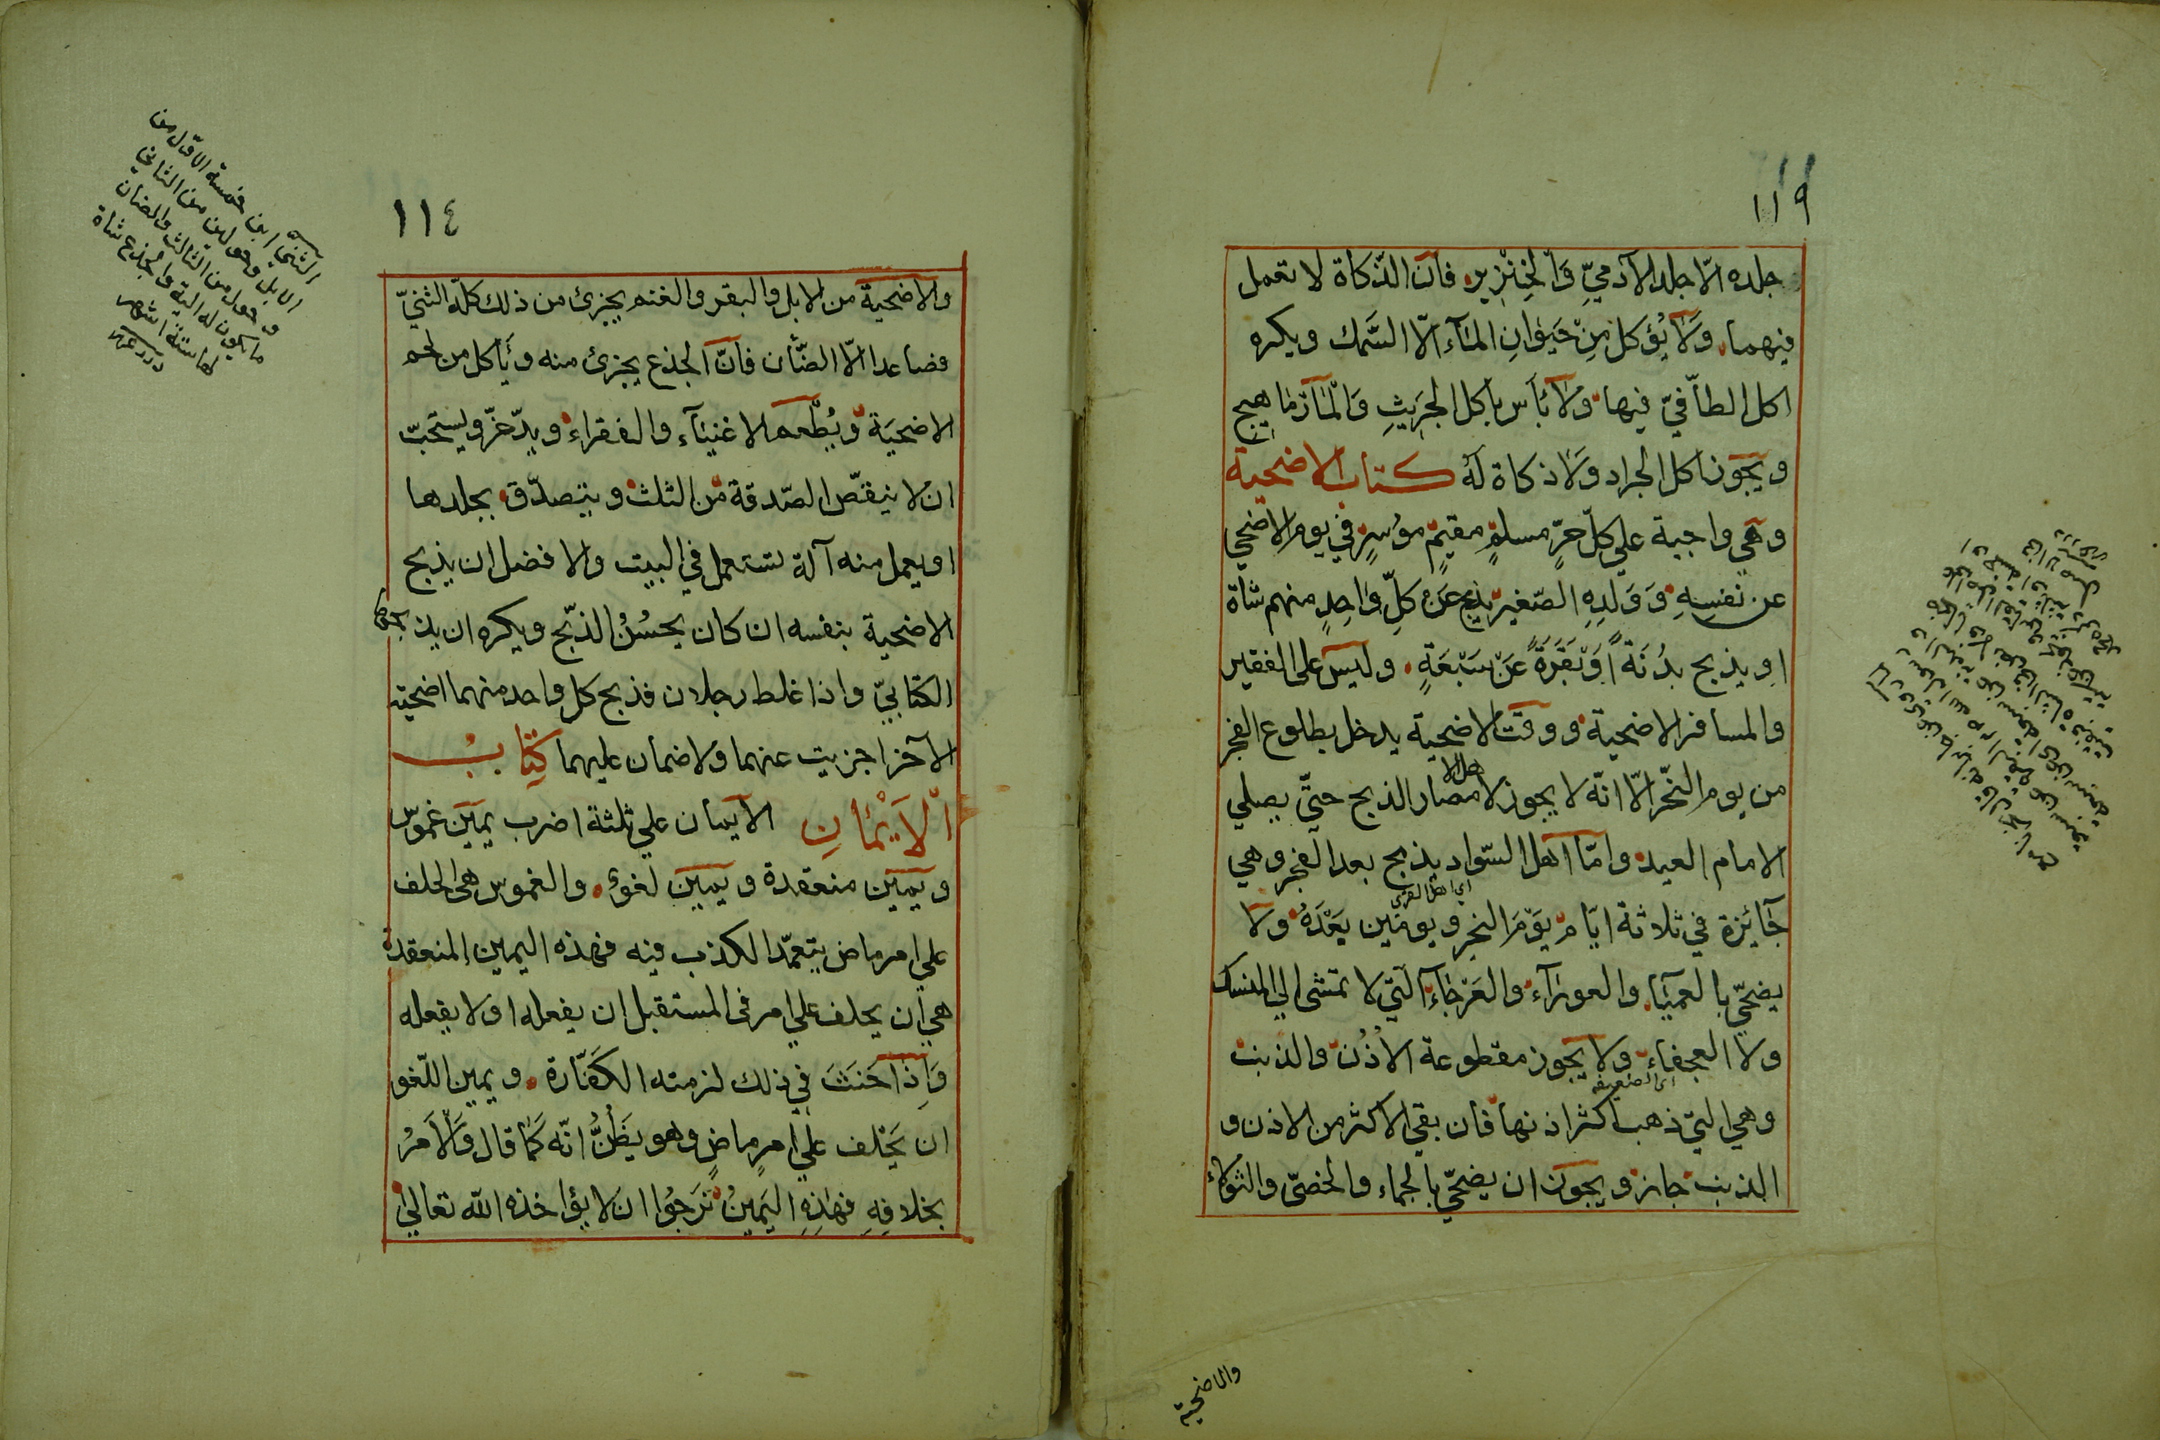 ١١٩
جلده الّا جلد الآدميّ والخنزير فانّ الذّكاة لا تعمل
فيهما ولا يُؤكل مِنْ حَيَوٰانِ المآء الّا السَّمك ويكره
اكل الطّافيّ فيها ولا بأس بأكل الجريثِ وَالْمٰارْمٰاهيج
ويجوز اكل الجراد ولا ذكاة لَهُ كتاب الاضحية
وهي واجبة علي كلّ حرّ مسلمٍ مقيمٍ موُسِرٍ في يوم الاضحي
عن نفسِهِ وَوَلَدِهِ الصّغير يذبح عَنْ كلِّ وٰاحِدٍ منهم شاة
او يذبح بدُنَةً اَوْ بَقَرَةً عَنْ سَبْعَةٍ وليس علي الفقير
والمسافر الاضحية ووقت الاضحية يدخل بطلوع الفجر
من يوم النّحر الّا انّه لا يجوز لاهل الامصار الذبح حتّي يصلي
الامام العيد وامّا اهل السّواد يذبح بعد الفجر وهي
اي اهل القري
جٰآئزة في ثلاثة ايّام يَوْمَ النحر ويومين بَعْدَهُ ولا
يضحّي بالعميٰآء والعورٰآء والعَرْجٰآءِ الّتي لا تمشي الي المنسك
ولا العجفاء ولا يجوز مقطوعة الاُذُن والذنب
اي الضعيفه
وهي التي ذهب اكثر اذنها فان بقي الاكثر من الاذن و
الذنب جاز ويجوز ان يضحّي بالجماء والخصّي والثولاء
والاضحية
١١٤
والاضحية من الابل والبقر والغنم يجزئ من ذلك كلّه الثنيّ
فصاعدا الّا الضّأن فانّ الجذع يجزئ منه ويأكل من لحم
الاضحيَة ويُطْعم الاغنيٰآء والفقراء ويدّخرّ ويستحبّ
ان لا ينقصّ الصّدقة من الثلث ويتصدّق بجلدها
او يعمل منه آلة تستعمل في البيت والافضل ان يذبح
الاضحية بنفسه ان كان يحسُنُ الذبّح ويكره ان يذبحها
الكتابيّ واذا غلط رجلان فذبح كل واحد منهما اضحية
الآخر اجزيت عنهما ولا ضمان عليهما كِتٰابُ
الْاَيْمٰانِ الايمان علي ثلثة اضرب يمين غموس
ويمين منعقدة ويمين لغو والغموس هي الحلف
علي امر ماض يتعمّد الكذب فيه فهذه اليمين المنعقدة
هي ان يحلف علي امر في المستقبل ان يفعله او لا يفعله
وَاِذٰا حَنَثَ في ذلك لزمته الكَفّارة ويمين اللّغو
ان يَحْلف علي امرٍ ماضٍ وهو يظَنُّ انّه كمٰا قال وَالْاَمرُ
بخلافِهِ فهٰذِهِ اليَمينُ نَرَجُوٰا ان لا يؤاخذه اللّه تعالي
الثنيّ ابن خمسة الاقل من
الابل وحولين من الثاني
وحول من الثالث والضان
ما يكون له الية والجذع شاة
لها ستة اشهر
درر غرر